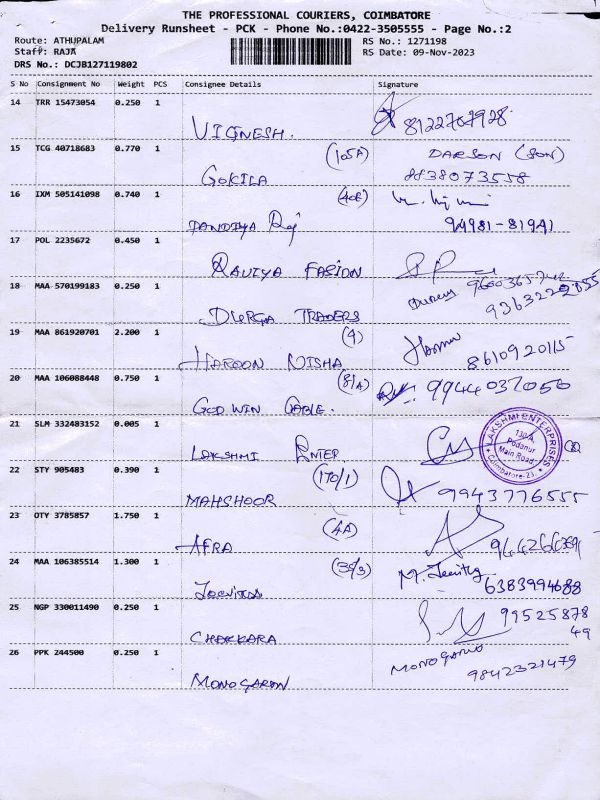 THE PROFESSIONAL COURIERS, COIMBATORE
Delivery Runsheet - PCK - Phone No.:0422-3505555 - Page No.:2
Route: ATHUPALAM RS No.: 1271198
Staff: RAJA RS Date: 09-Nov-2023
DRS No.: DCJB127119802
S No Consignment No Weight PCS Consignee Details Signature
14 TRR 15473054 0.250 1
VIGNESH. 8122767928
15 TCG 40718683 0.770 1 (105A) DARSON (SON)
GOKILA 8838073558
16 IXM 505141098 0.740 1 (40E)
PANDIYA Raj 94981-81941
17 POL 2235672 0.450 1
RAVIYA FASION
18 MAA 570199183 0.250 1
DURGA TRADERS
19 MAA 861920701 2.200 1 (9)
HAROON NISHA 8610920115
20 MAA 106088448 0.750 1 (81A) 9944037056
GOD WIN CABLE.
21 SLM 332483152 0.005 1 LAKSHMI ENTERPRISES
130/A, Podanur Main Road, Coimbatore-23.
LAKSHMI ENTER
22 STY 905483 0.390 1 (170/1)
MAHSHOOR 9943776555
23 OTY 3785857 1.750 1 (4A)
AFRA
24 MAA 106385514 1.300 1 M. Jeevitha
Jeevitha 6383994688
25 NGP 330011490 0.250 1 99525878
CHAKKARA 49
26 PPK 244500 0.250 1
MONOGARAN 9842321479